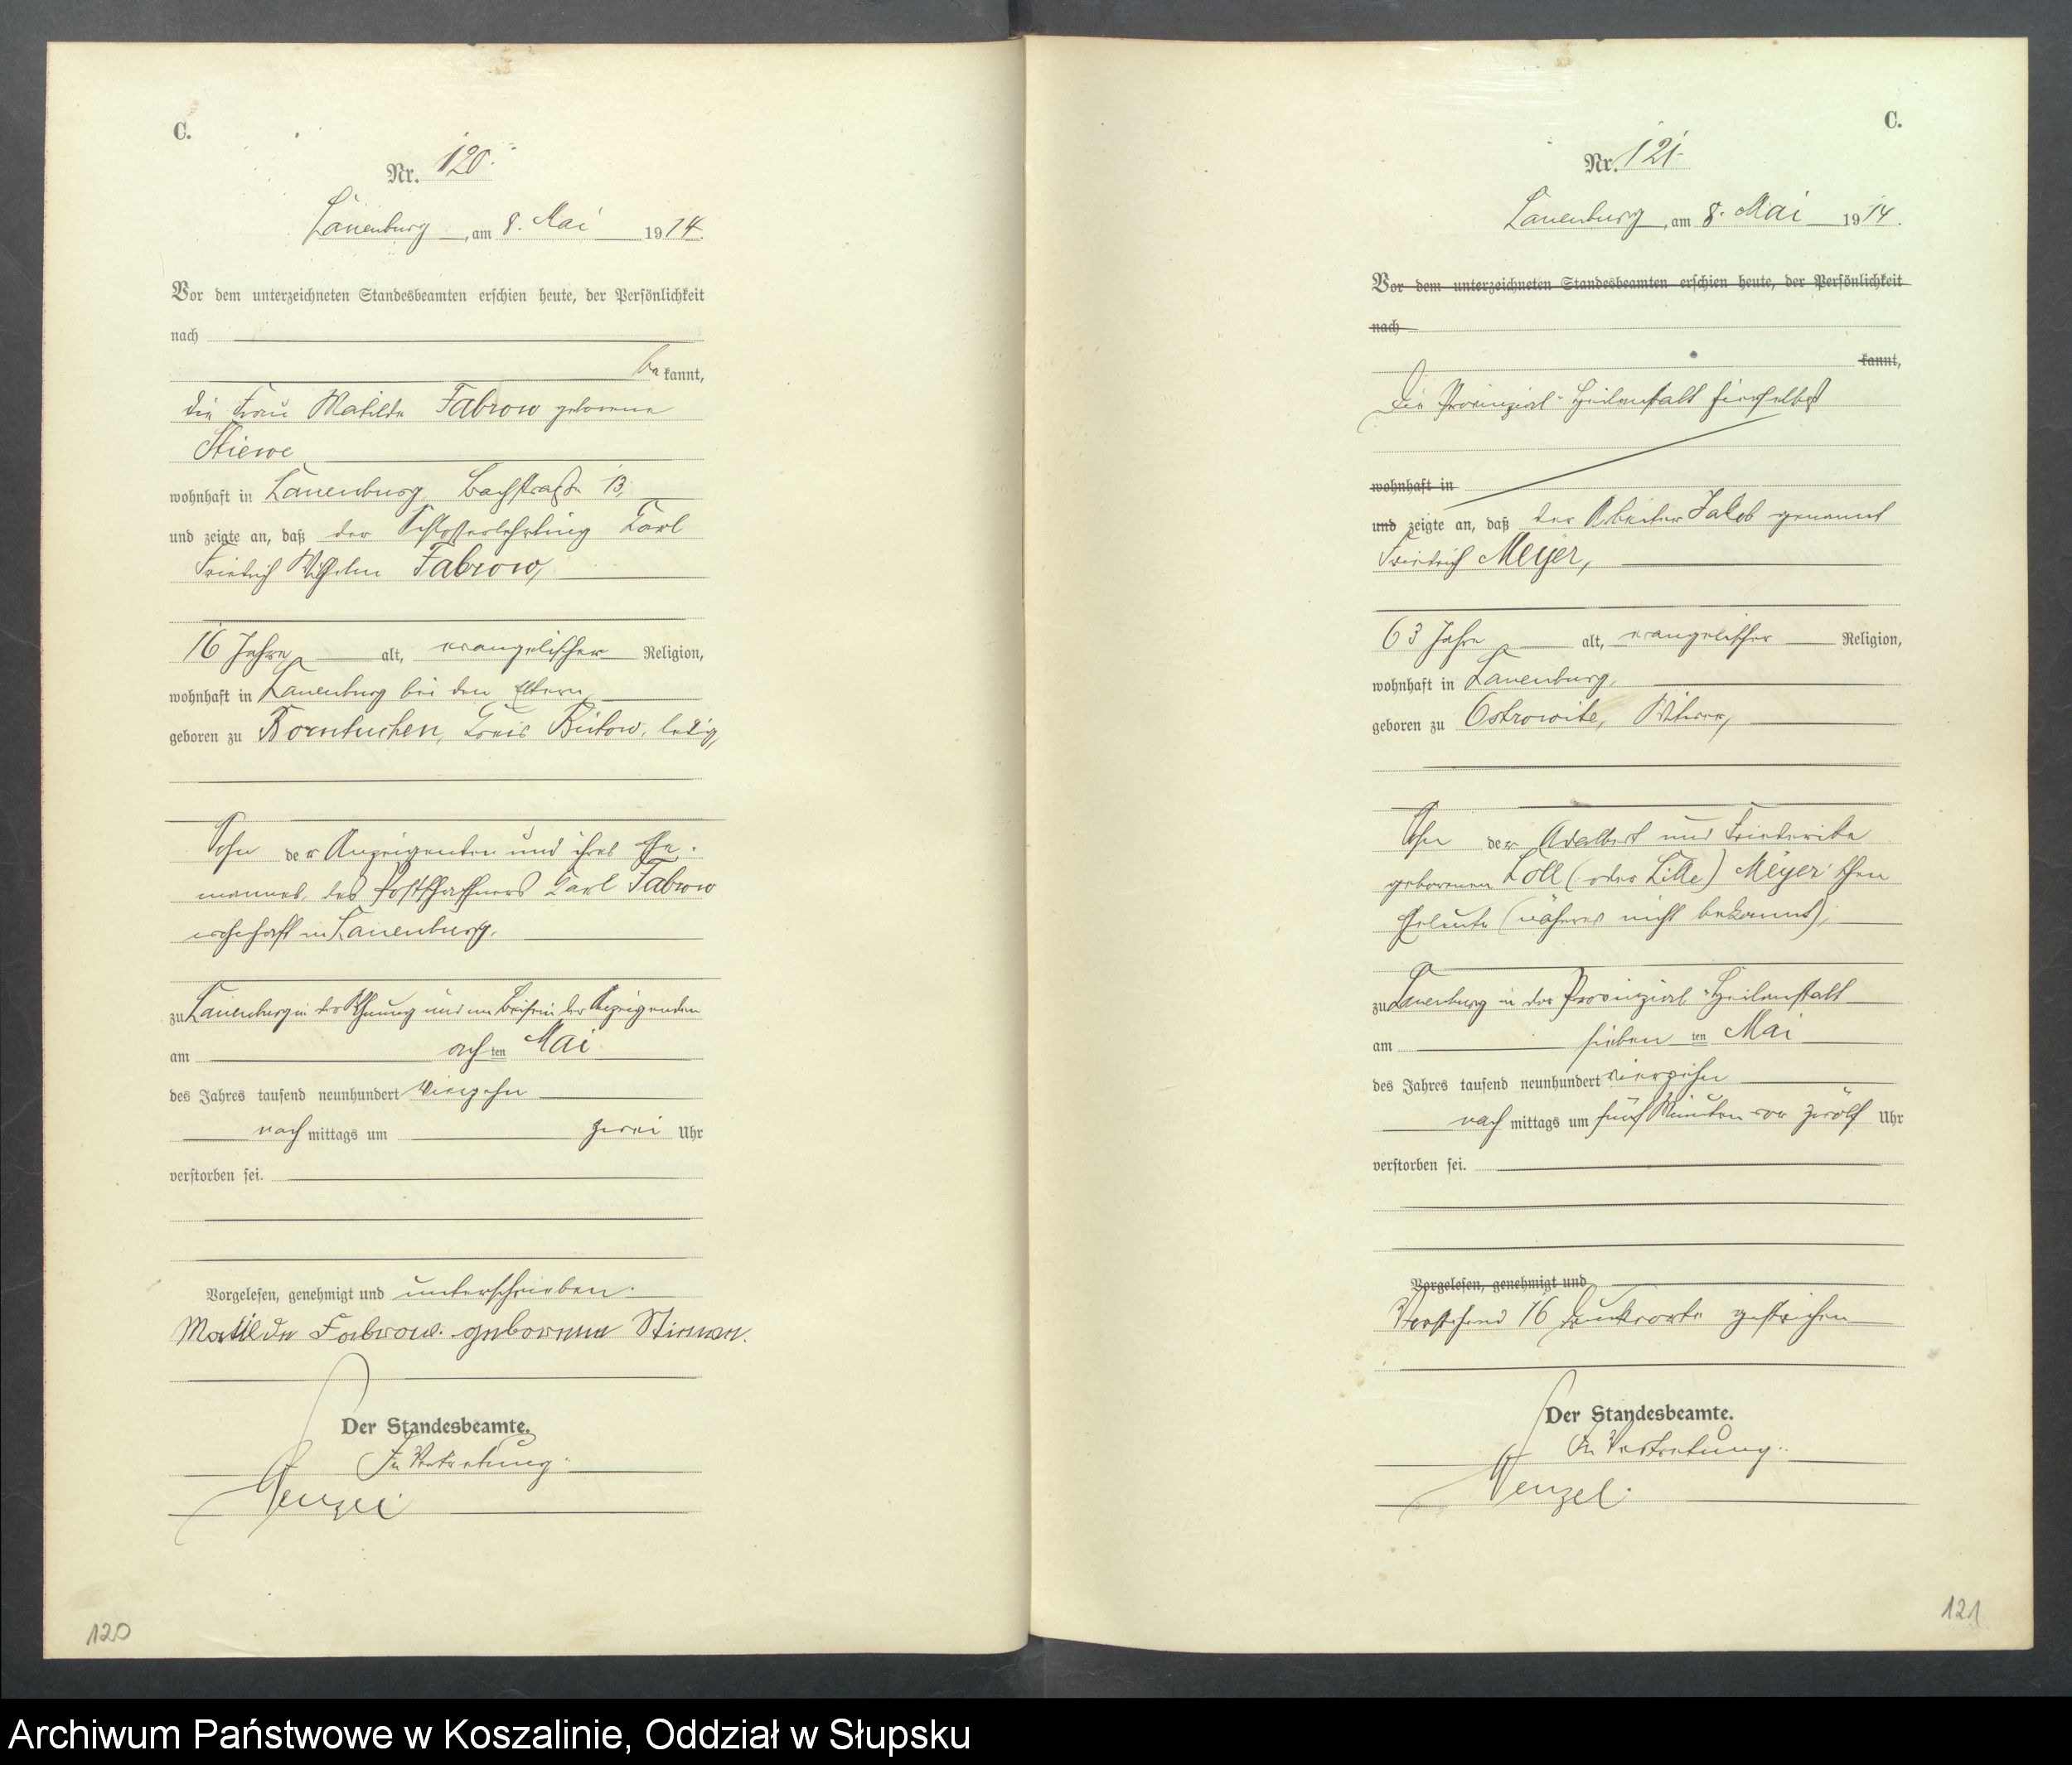 C.
Nr. 120.
Lauenburg, am 8. Mai 1914.
Vor dem unterzeichneten Standesbeamten erschien heute, der Persönlichkeit
nach
be kannt,
die Frau Matilde Fabrow geborene
Stiewe
wohnhaft in Lauenburg, Bachstraße 13,
und zeigte an, daß der Schlosserlehrling Karl
Friedrich Wilhelm Fabrow,
16 Jahre alt, evangelischer Religion,
wohnhaft in Lauenburg bei den Eltern
geboren zu Borntuchen, Kreis Bütow, ledig,
Sohn der Anzeigenden und ihres Ehe-
mannes, des Postschaffners Karl Fabrow
wohnhaft in Lauenburg,
zu Lauenburg in der Wohnung und im Beisein der Anzeigenden
am achten Mai
des Jahres tausend neunhundert vierzehn
nach mittags um zwei Uhr
verstorben sei.
Vorgelesen, genehmigt und unterschrieben.
Matilde Fabrow. geborene Stiewe.
Der Standesbeamte.
In Vertretung.
Wenzel
120
C.
Nr. 121.
Lauenburg, am 8. Mai 1914.
Vor dem unterzeichneten Standesbeamten erschien heute, der Persönlichkeit
nach
kannt,
Die Provinzial-Heilanstalt hierselbst
wohnhaft in
und zeigte an, daß der Arbeiter Jakob genannt
Friedrich Meyer,
63 Jahre alt, evangelischer Religion,
wohnhaft in Lauenburg,
geboren zu Ostrowite, Witwer,
Sohn der Adalbert und Friederike
geborenen Loll (oder Lille) Meyer'schen
Eheleute (näheres nicht bekannt),
zu Lauenburg in der Provinzial-Heilanstalt
am siebenten Mai
des Jahres tausend neunhundert vierzehn
nach mittags um fünf Minuten vor zwölf Uhr
verstorben sei.
Vorgelesen, genehmigt und
Vorstehend 16 Druckworte gestrichen
Der Standesbeamte.
In Vertretung.
Wenzel.
121
Archiwum Państwowe w Koszalinie, Oddział w Słupsku